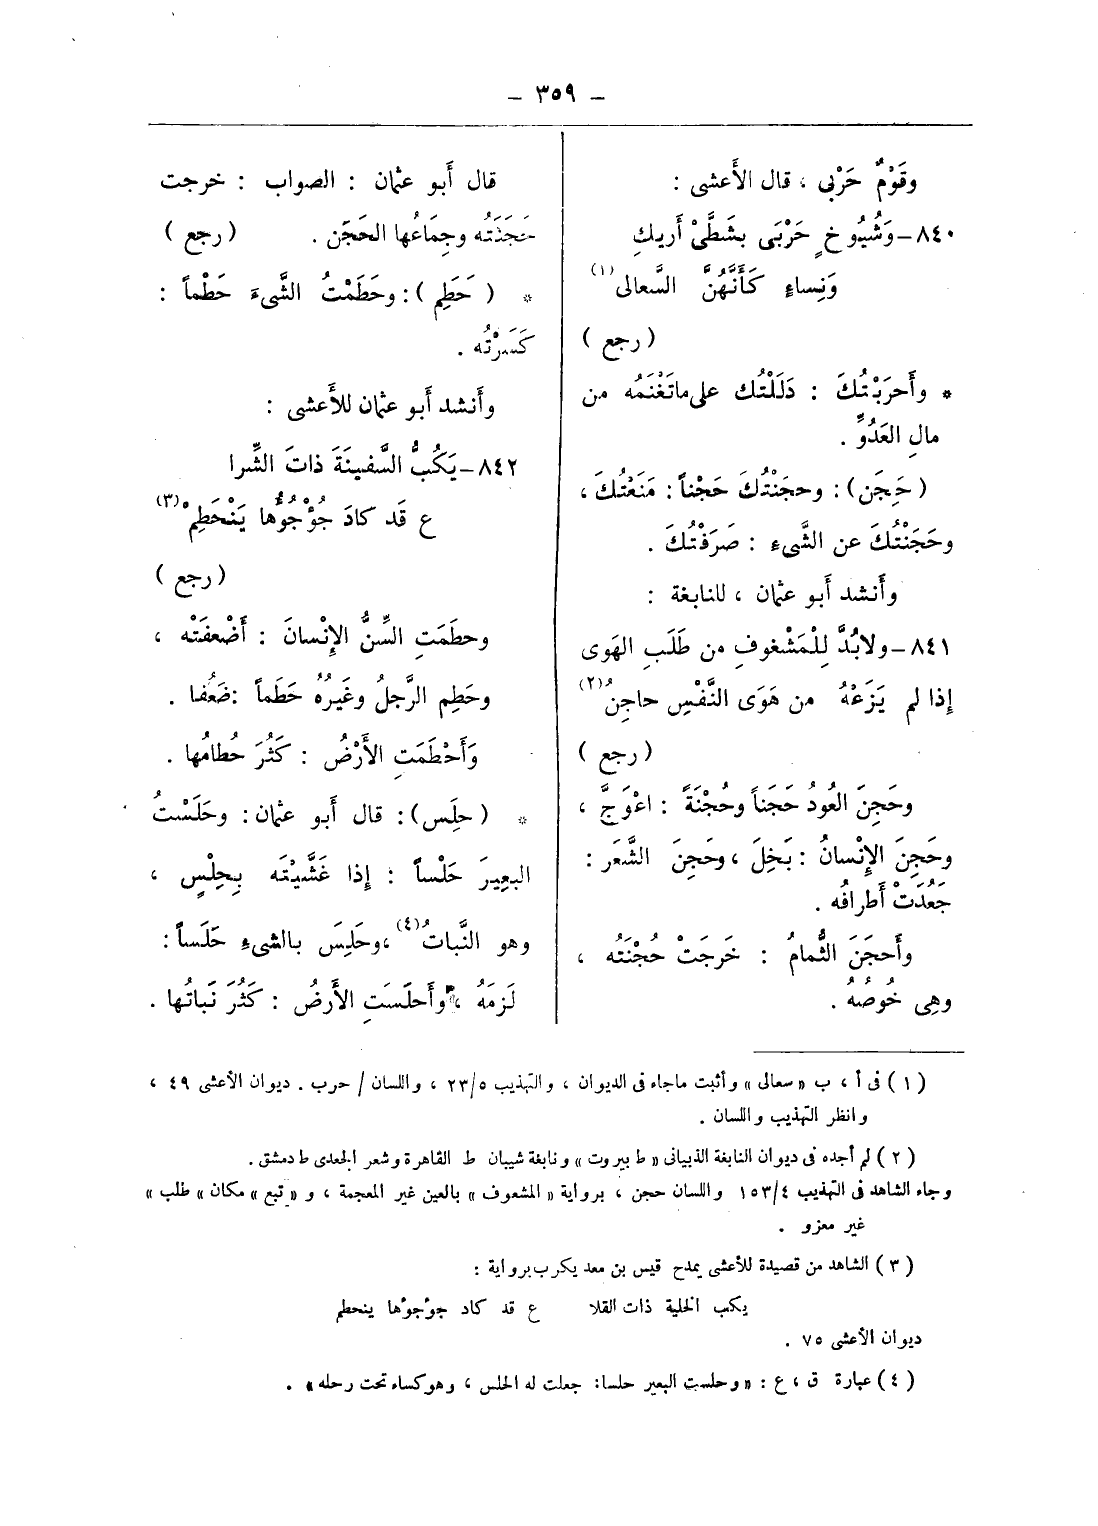 – ٣٥٩ –
وقَوْمٌ حَرْبى ، قال الأَعشى :
٨٤٠ – وَشُيُوخٍ حَرْبَى بشَطَّىْ أَريكِ
وَنِساءٍ كَأَنَّهُنَّ السَّعالى (١)
( رجع )
* وأَحرَبْتُكَ : دَلَلْتُك على ماتَغْنَمُه من
مالِ العَدُوِّ .
( حَجَن ) : وحجَنْتُكَ حَجْناً : مَنَعْتُكَ ،
وحَجَنْتُكَ عن الشَّىءِ : صَرَفْتُكَ .
وأَنشد أَبو عثمان ، للنابغة :
٨٤١ – ولابُدَّ لِلْمَشْغوفِ من طَلَبِ الهَوى
إِذا لم يَزَعْهُ من هَوَى النَّفْسِ حاجِنُ (٢)
( رجع )
وحَجِنَ العُودُ حَجَناً وحُجْنَةً : اعْوَجَّ ،
وحَجِنَ الإِنْسانُ : بَخِلَ ، وحَجِنَ الشَّعَر :
جَعُدَتْ أَطرافُه .
وأَحجَنَ الثُّمامُ : خَرجَتْ حُجْنَتُه ،
وهِى خُوصُهُ .
قال أَبو عثمان : الصواب : خرجت
حَجَنَتُه وجِمَاعُها الحَجَن . ( رجع )
* ( حَطِم ) : وحَطَمْتُ الشَّىءَ حَطْماً :
كَسَرْتُه .
وأَنشد أَبو عثمان للأَعشى :
٨٤٢ – يَكُبُّ السَّفينَةَ ذاتَ الشِّرا
ع قد كادَ جُؤْجُؤُها يَنْحَطِمْ (٣)
( رجع )
وحطَمَتِ السِّنُّ الإِنْسانَ : أَضْعفَتْه ،
وحَطِم الرَّجلُ وغَيرُهُ حَطَماً : ضَعُفا .
وَأَحْطَمَتِ الأَرْضُ : كَثُرَ حُطامُها .
* ( حلِس ) : قال أَبو عثمان : وحَلَسْتُ
البعِيرَ حَلْساً : إِذا غَشَّيْتَه بِحِلْسٍ ،
وهو النَّباتُ (٤) ، وحَلِسَ بالشىءِ حَلَساً :
لَزِمَهُ ، وأَحلَسَتِ الأَرضُ : كَثُرَ نَباتُها .
( ١ ) فى أ ، ب « سعالى » وأثبت ماجاء فى الديوان ، والتهذيب ٢٣/٥ ، واللسان / حرب . ديوان الأعشى ٤٩ ،
وانظر التهذيب واللسان .
( ٢ ) لم أجده فى ديوان النابغة الذبيانى « ط بيروت » ونابغة شيبان ط القاهرة وشعر الجعدى ط دمشق .
وجاء الشاهد فى التهذيب ١٥٣/٤ واللسان حجن ، برواية « المشعوف » بالعين غير المعجمة ، و « تبع » مكان « طلب »
غير معزو .
( ٣ ) الشاهد من قصيدة للأعشى يمدح قيس بن معد يكرب برواية :
يكب الخلية ذات القلا ع قد كاد جؤجؤها ينحطم
ديوان الأعشى ٧٥ .
( ٤ ) عبارة ق ، ع : « وحلست البعير حلسا : جعلت له الحلس ، وهو كساء تحت رحله » .